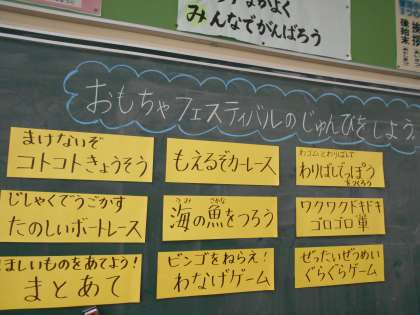 なかよく
みんなでがんばろう
おもちゃフェスティバルのじゅんびをしよう。
まけないぞ
コトコトきょうそう
もえるぞカーレース
わゴムとわりばしで
わりばしでっぽう
をつくろう
じしゃくでうごかす
たのしいボートレース
うみ さかな
海の魚をつろう
ワクワクドキドキ
ゴロゴロ車
ほしいものをあてよう!
まとあて
ビンゴをねらえ!
わなげゲーム
ぜったいぜつめい
ぐらぐらゲーム